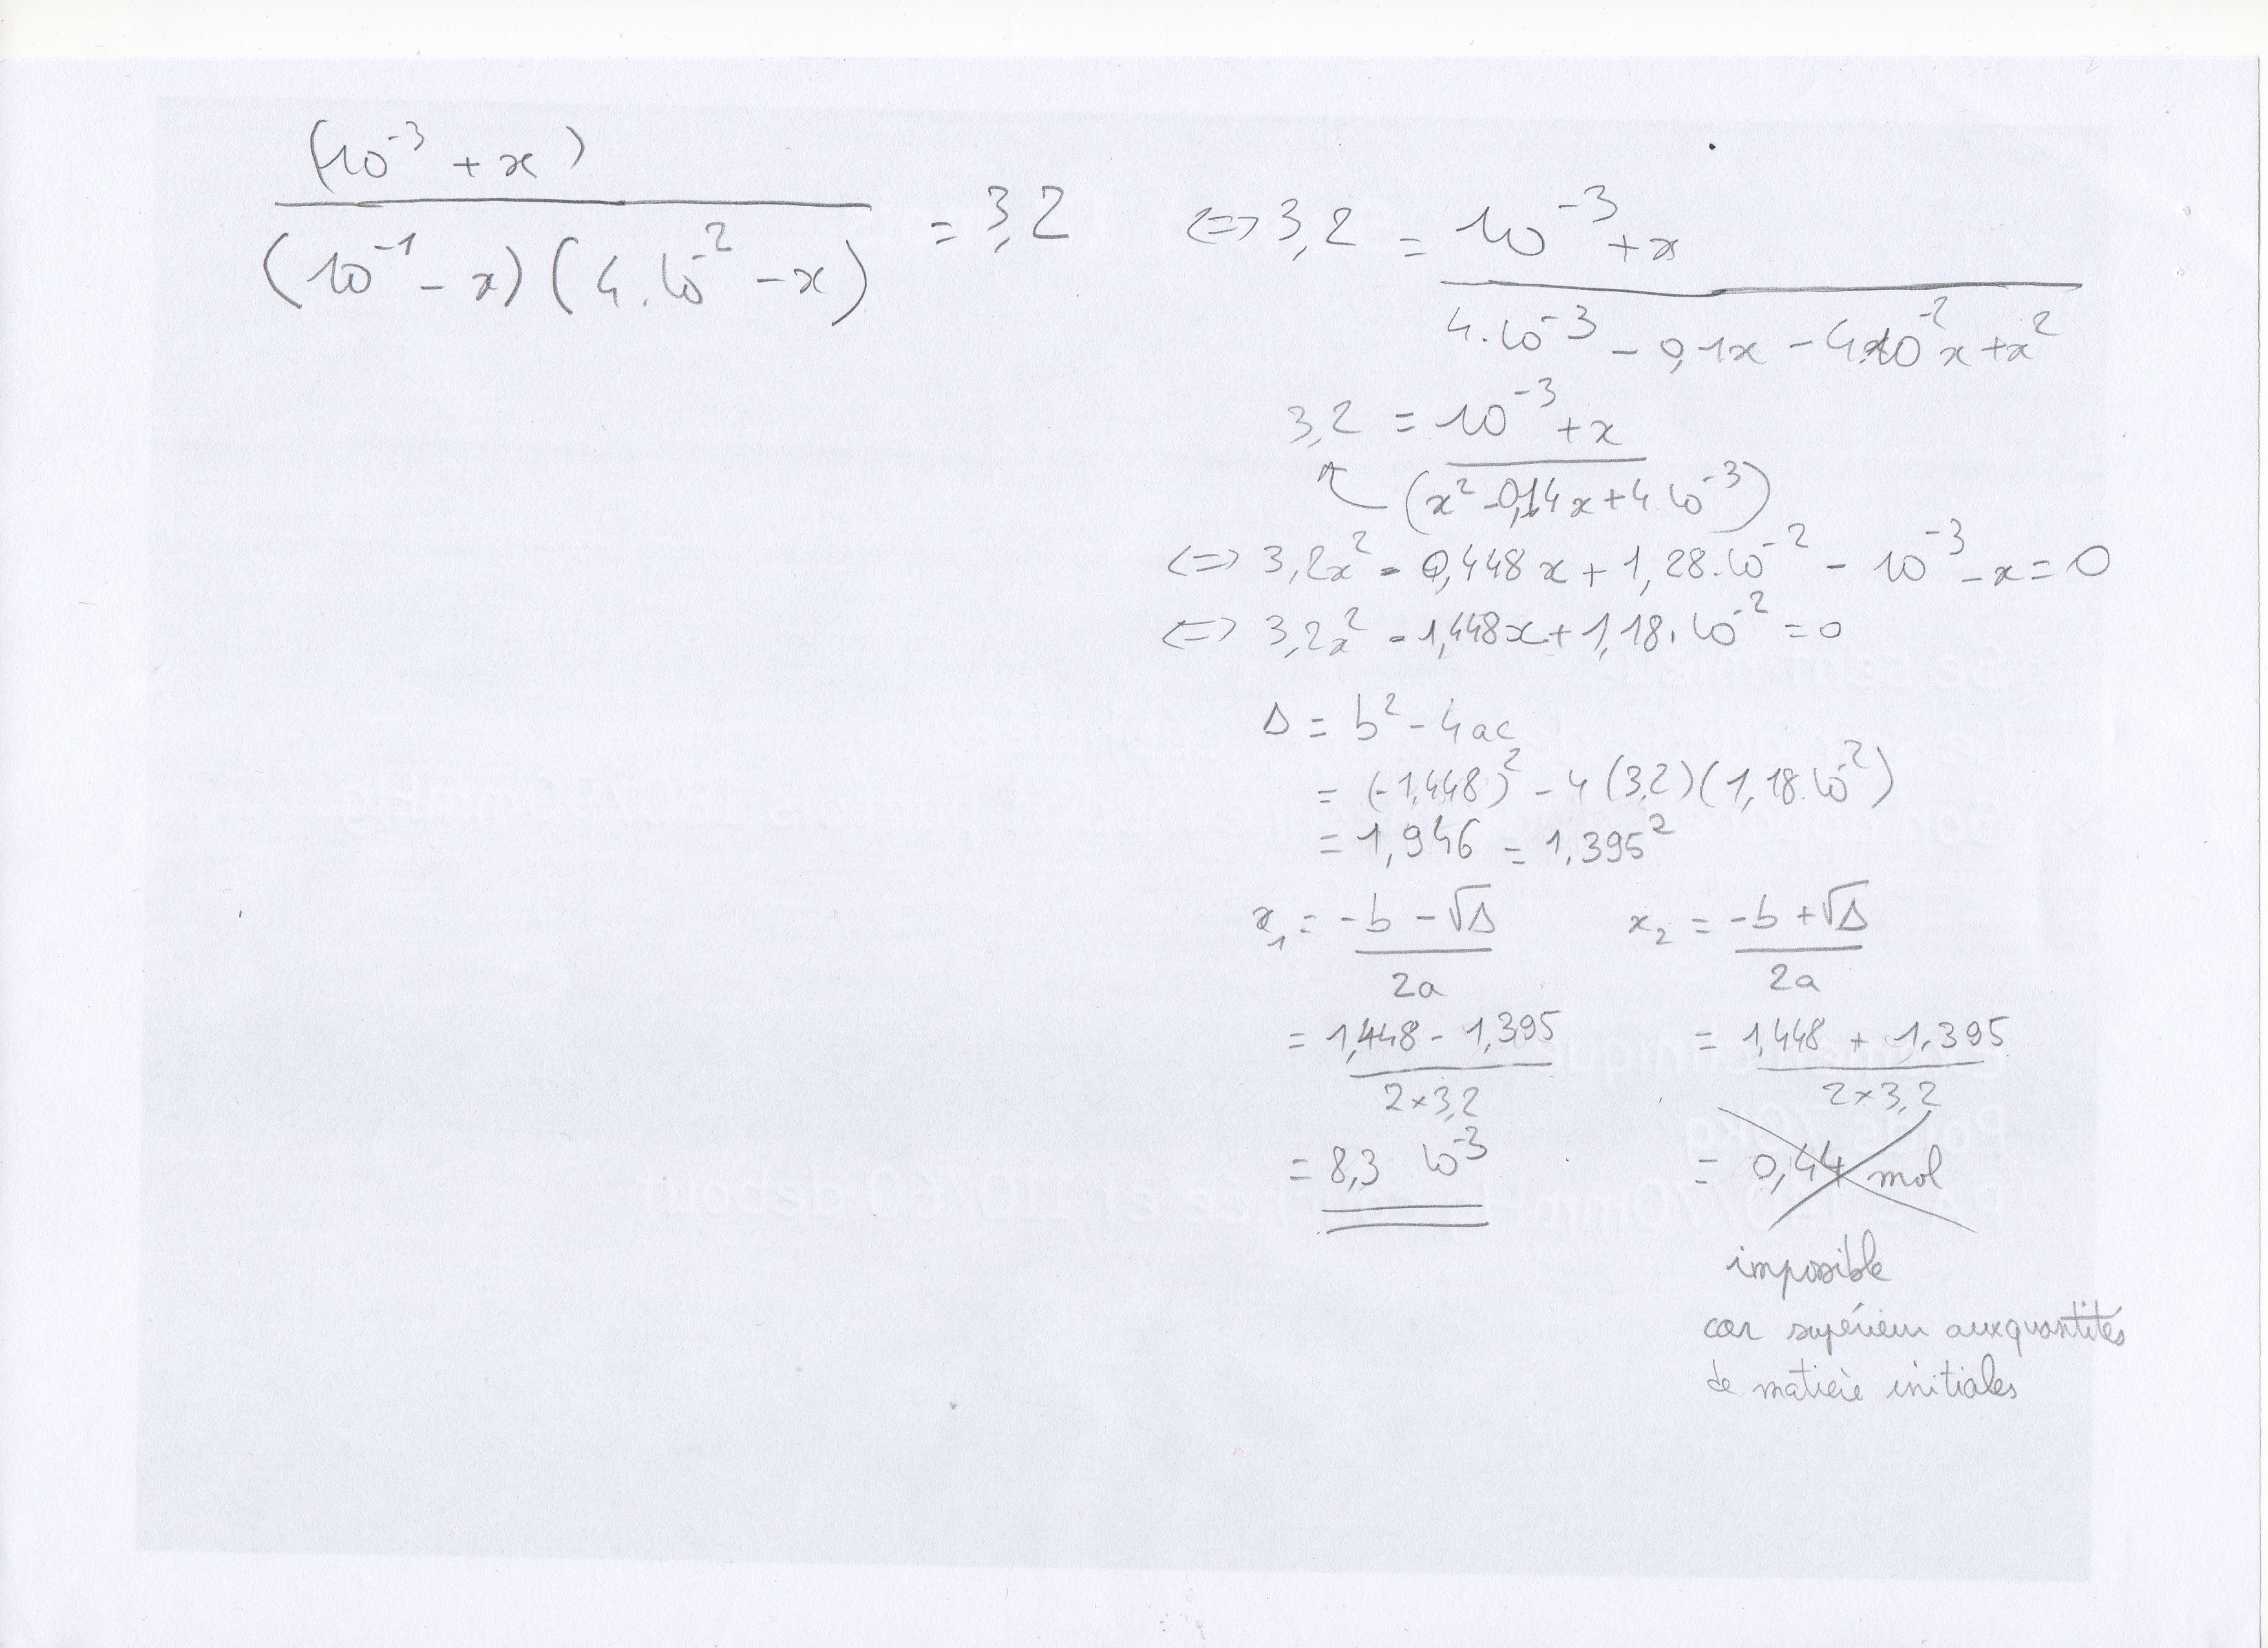 (10⁻³ + x) / (10⁻¹ - x)(4.10⁻² - x) = 3,2 <=> 3,2 = 10⁻³ + x / 4.10⁻³ - 0,1x - 4x10⁻²x + x²
3,2 = 10⁻³ + x / (x² - 0,14x + 4.10⁻³)
<=> 3,2x² - 0,448x + 1,28.10⁻² - 10⁻³ - x = 0
<=> 3,2x² - 1,448x + 1,18.10⁻² = 0
Δ = b² - 4ac
= (-1,448)² - 4(3,2)(1,18.10⁻²)
= 1,946 = 1,395²
x₁ = -b - √Δ / 2a x₂ = -b + √Δ / 2a
= 1,448 - 1,395 / 2×3,2 = 1,448 + 1,395 / 2×3,2
= 8,3 10⁻³ = 0,44 mol
impossible
car supérieur aux quantités
de matière initiales